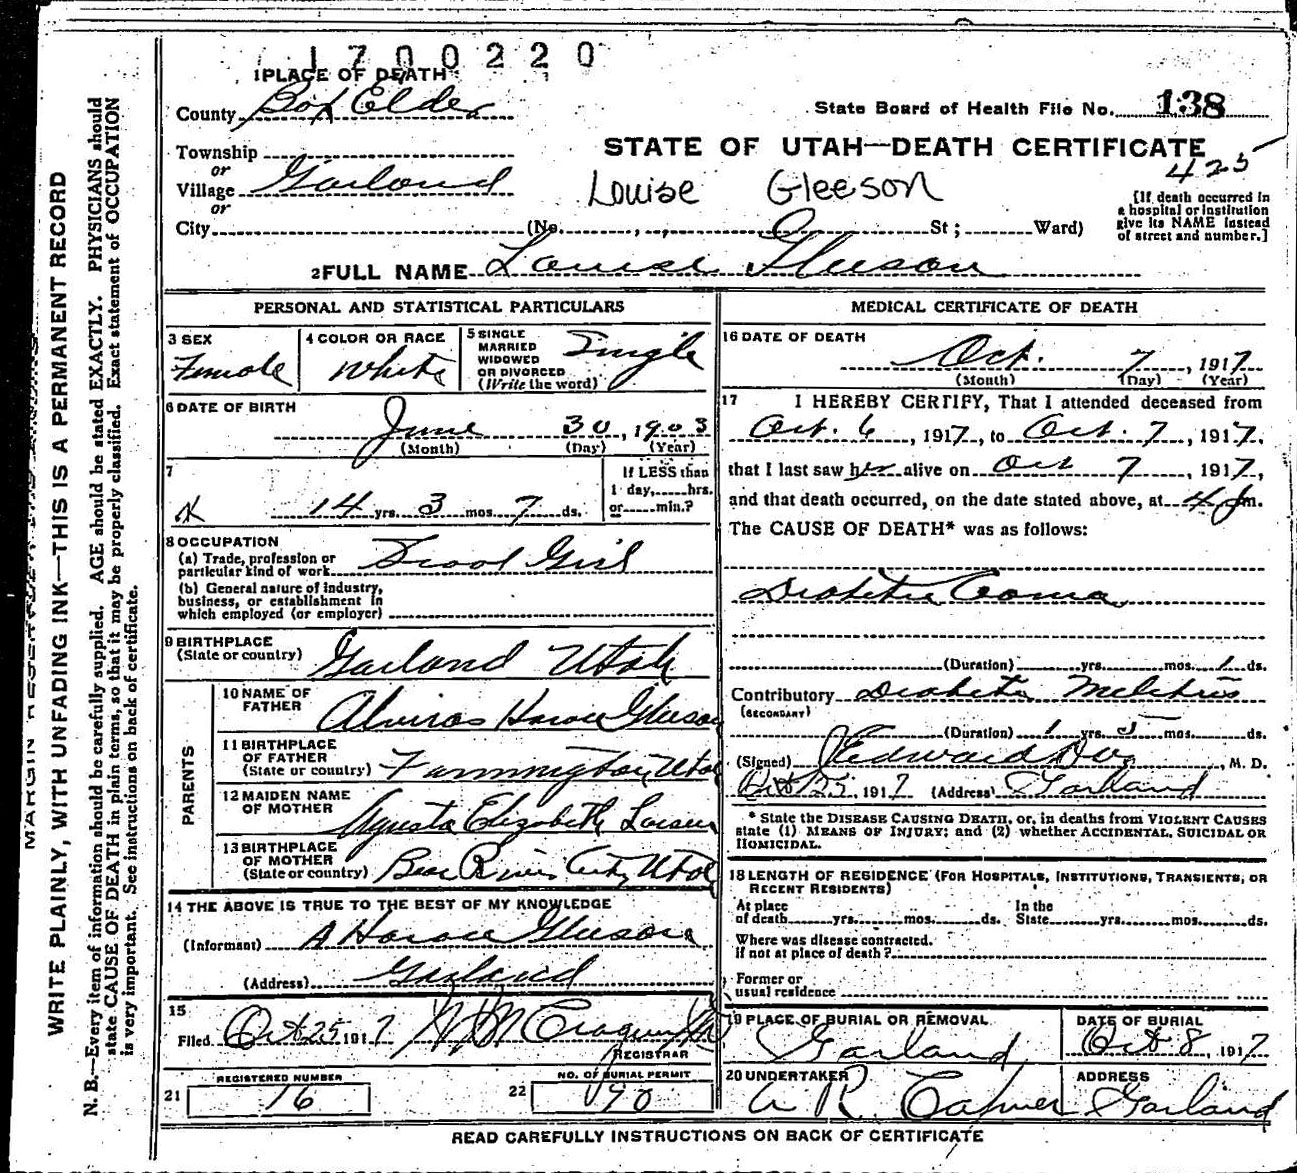 1700220
1 PLACE OF DEATH
County Box Elder
State Board of Health File No. 138
Township
or
Village Garland
or
City (No. , , St ; Ward)
STATE OF UTAH—DEATH CERTIFICATE
425
Louise Gleeson
[If death occurred in
a hospital or institution
give its NAME instead
of street and number.]
2 FULL NAME Louise Gleeson
PERSONAL AND STATISTICAL PARTICULARS
3 SEX
Female
4 COLOR OR RACE
White
5 SINGLE
MARRIED
WIDOWED
OR DIVORCED
(Write the word)
Single
6 DATE OF BIRTH
June 30, 1903
(Month) (Day) (Year)
7
14 yrs. 3 mos. 7 ds.
If LESS than
1 day, hrs.
or min.?
8 OCCUPATION
(a) Trade, profession or
particular kind of work School Girl
(b) General nature of industry,
business, or establishment in
which employed (or employer)
9 BIRTHPLACE
(State or country) Garland Utah
PARENTS
10 NAME OF
FATHER Alviras Horace Gleeson
11 BIRTHPLACE
OF FATHER
(State or country) Farmington, Utah
12 MAIDEN NAME
OF MOTHER Agusta Elizabeth Larsen
13 BIRTHPLACE
OF MOTHER
(State or country) Bear River City Utah
14 THE ABOVE IS TRUE TO THE BEST OF MY KNOWLEDGE
(Informant) A Horace Gleeson
(Address) Garland
15
Filed Oct 25 1917
REGISTRAR
21 REGISTERED NUMBER
16
22 NO. OF BURIAL PERMIT
190
MEDICAL CERTIFICATE OF DEATH
16 DATE OF DEATH
Oct. 7, 1917
(Month) (Day) (Year)
17 I HEREBY CERTIFY, That I attended deceased from
Oct. 6, 1917, to Oct. 7, 1917,
that I last saw her alive on Oct 7, 1917,
and that death occurred, on the date stated above, at 4 m.
The CAUSE OF DEATH* was as follows:
Diabetic Coma
(Duration) yrs. mos. 1 ds.
Contributory Diabetis Melitus
(SECONDARY)
(Duration) 1 yrs. 5 mos. ds.
(Signed) Edward , M. D.
Oct 25, 1917 (Address) Garland
* State the DISEASE CAUSING DEATH, or, in deaths from VIOLENT CAUSES
state (1) MEANS OF INJURY; and (2) whether ACCIDENTAL, SUICIDAL OR
HOMICIDAL.
18 LENGTH OF RESIDENCE (FOR HOSPITALS, INSTITUTIONS, TRANSIENTS, OR
RECENT RESIDENTS)
At place
of death yrs. mos. ds.
In the
State yrs. mos. ds.
Where was disease contracted.
if not at place of death?
Former or
usual residence
19 PLACE OF BURIAL OR REMOVAL
Garland
DATE OF BURIAL
Oct 8, 1917
20 UNDERTAKER
A R
ADDRESS
Garland
READ CAREFULLY INSTRUCTIONS ON BACK OF CERTIFICATE
WRITE PLAINLY, WITH UNFADING INK—THIS IS A PERMANENT RECORD
N. B.—Every item of information should be carefully supplied. AGE should be stated EXACTLY. PHYSICIANS should
state CAUSE OF DEATH in plain terms, so that it may be properly classified. Exact statement of OCCUPATION
is very important. See instructions on back of certificate.